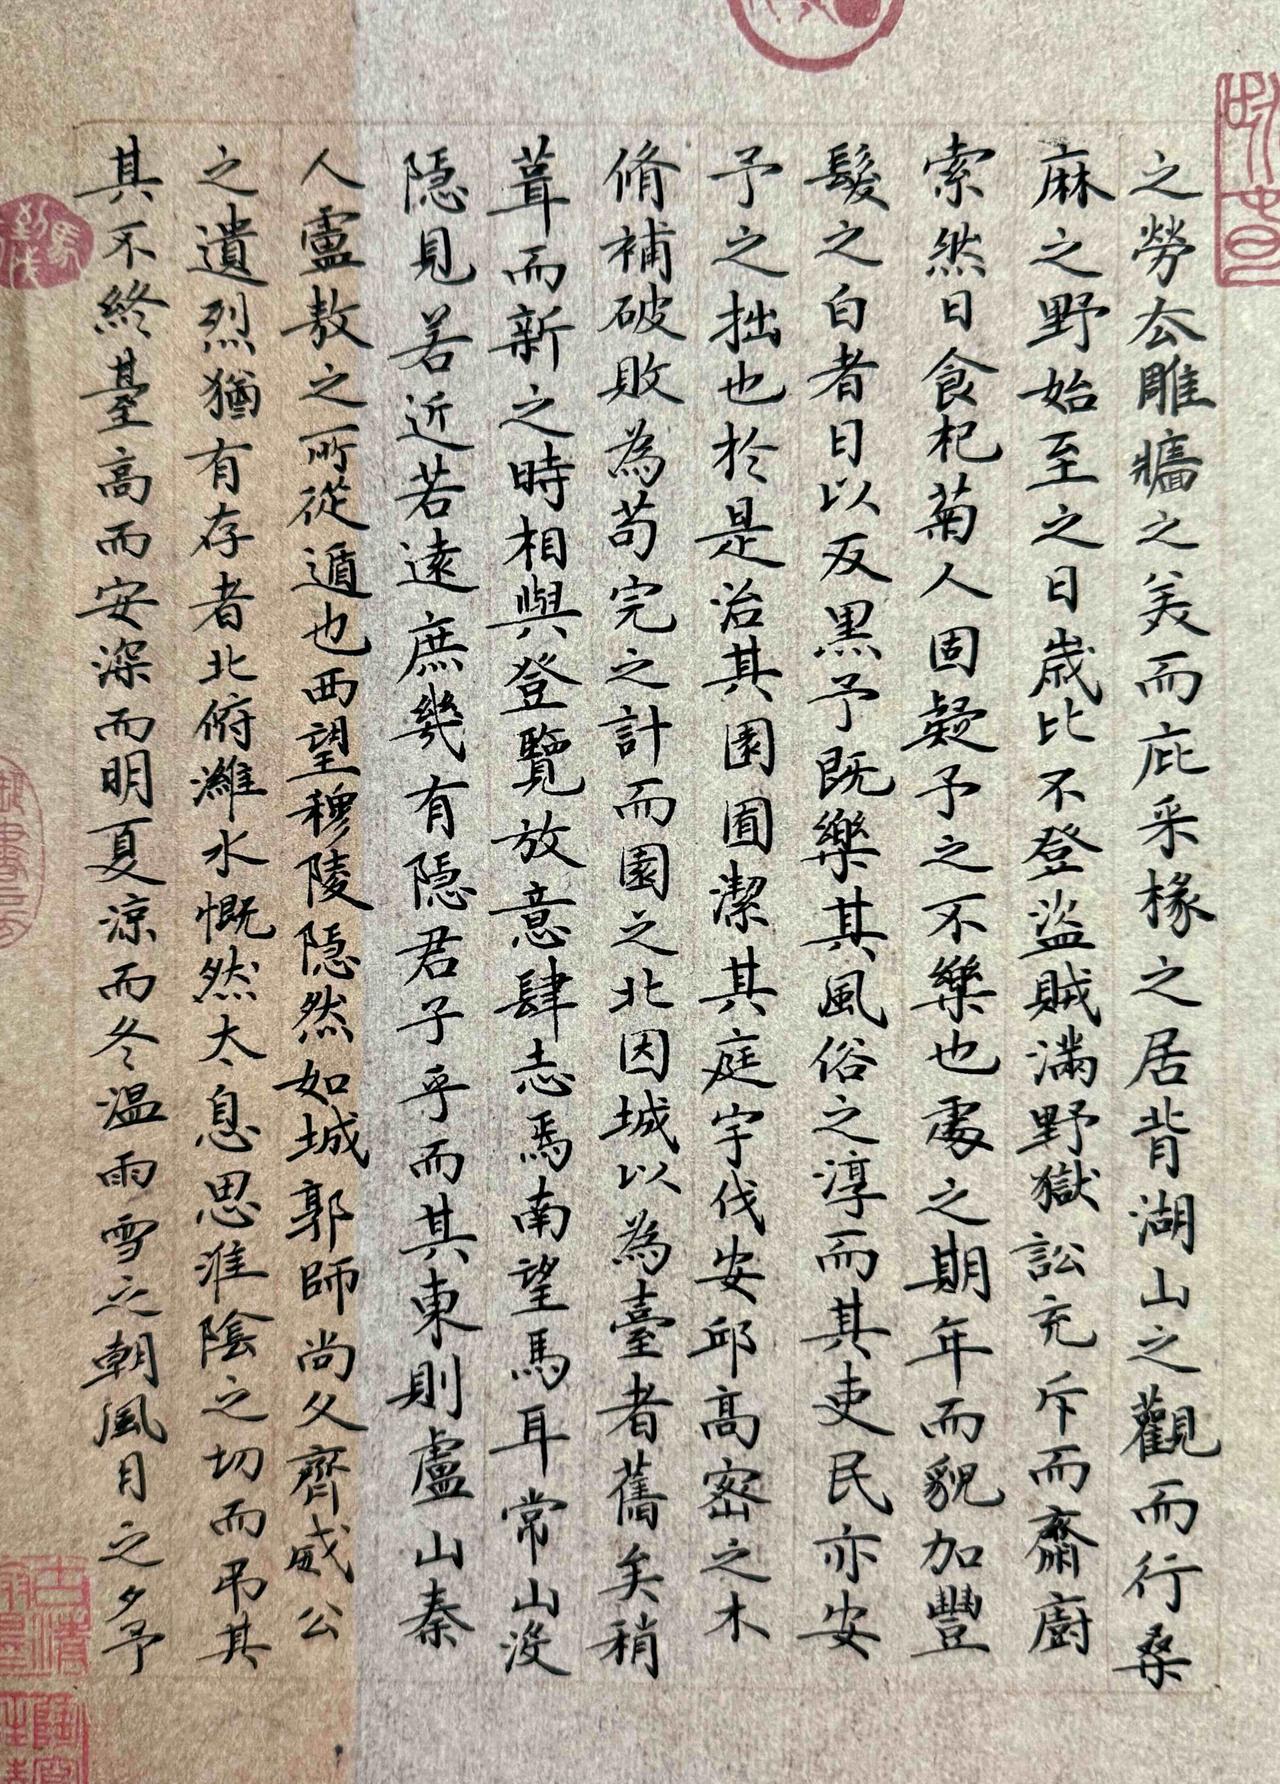 之勞厺雕牆之美而庇采椽之居背湖山之觀而行桑
麻之野始至之日歲比不登盜賊滿野獄訟充斥而齋廚
索然日食杞菊人固疑予之不樂也處之期年而貌加豐
髮之白者日以反黑予既樂其風俗之淳而其吏民亦安
予之拙也於是治其園圃潔其庭宇伐安邱高密之木
脩補破敗為苟完之計而園之北因城以為臺者舊矣稍
葺而新之時相與登覽放意肆志焉南望馬耳常山沒
隱見若近若遠庶幾有隱君子乎而其東則盧山秦
人盧敖之所從遁也西望穆陵隱然如城郭師尚父齊威公
之遺烈猶有存者北俯濰水慨然太息思淮陰之切而弔其
其不終臺高而安深而明夏涼而冬溫雨雪之朝風月之夕予